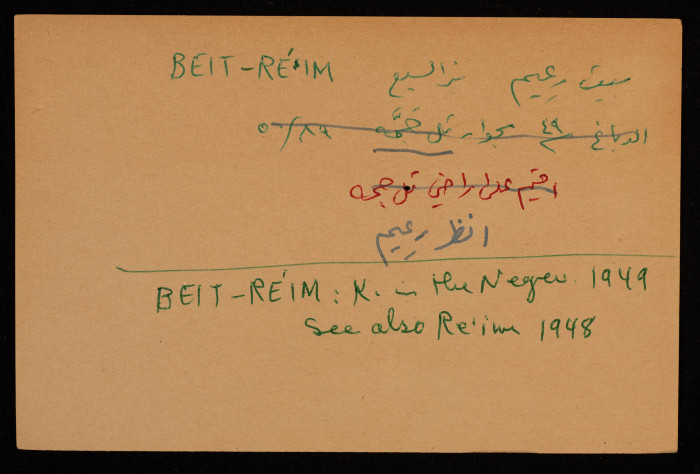 BEIT-RE'IM بيت رعيم بئر السبع
الدباغ ٤٩ بجوار تل جَمَّه ٥٠/٨٩
اقيم على اراضي تل جمه
انظر رعيم
BEIT-RE'IM : K. in the Negev 1949
See also Re'im 1948